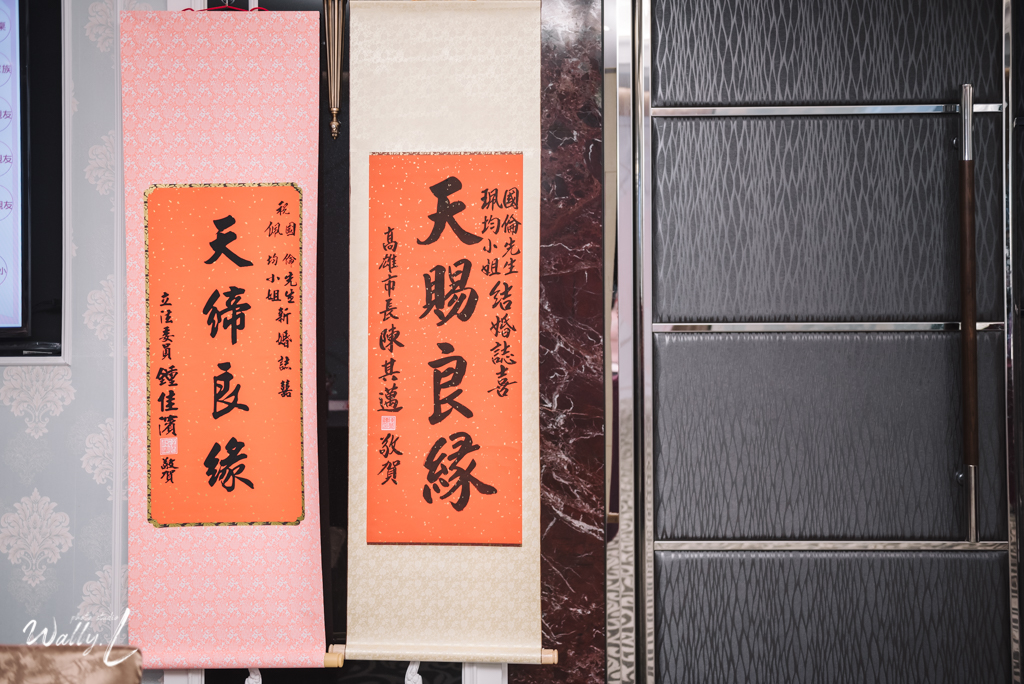 祝
國倫先生
佩均小姐
新婚誌囍
天締良緣
立法委員鍾佳濱敬賀
國倫先生
珮均小姐
結婚誌喜
天賜良緣
高雄市長陳其邁敬賀
photo studio
Wally.L